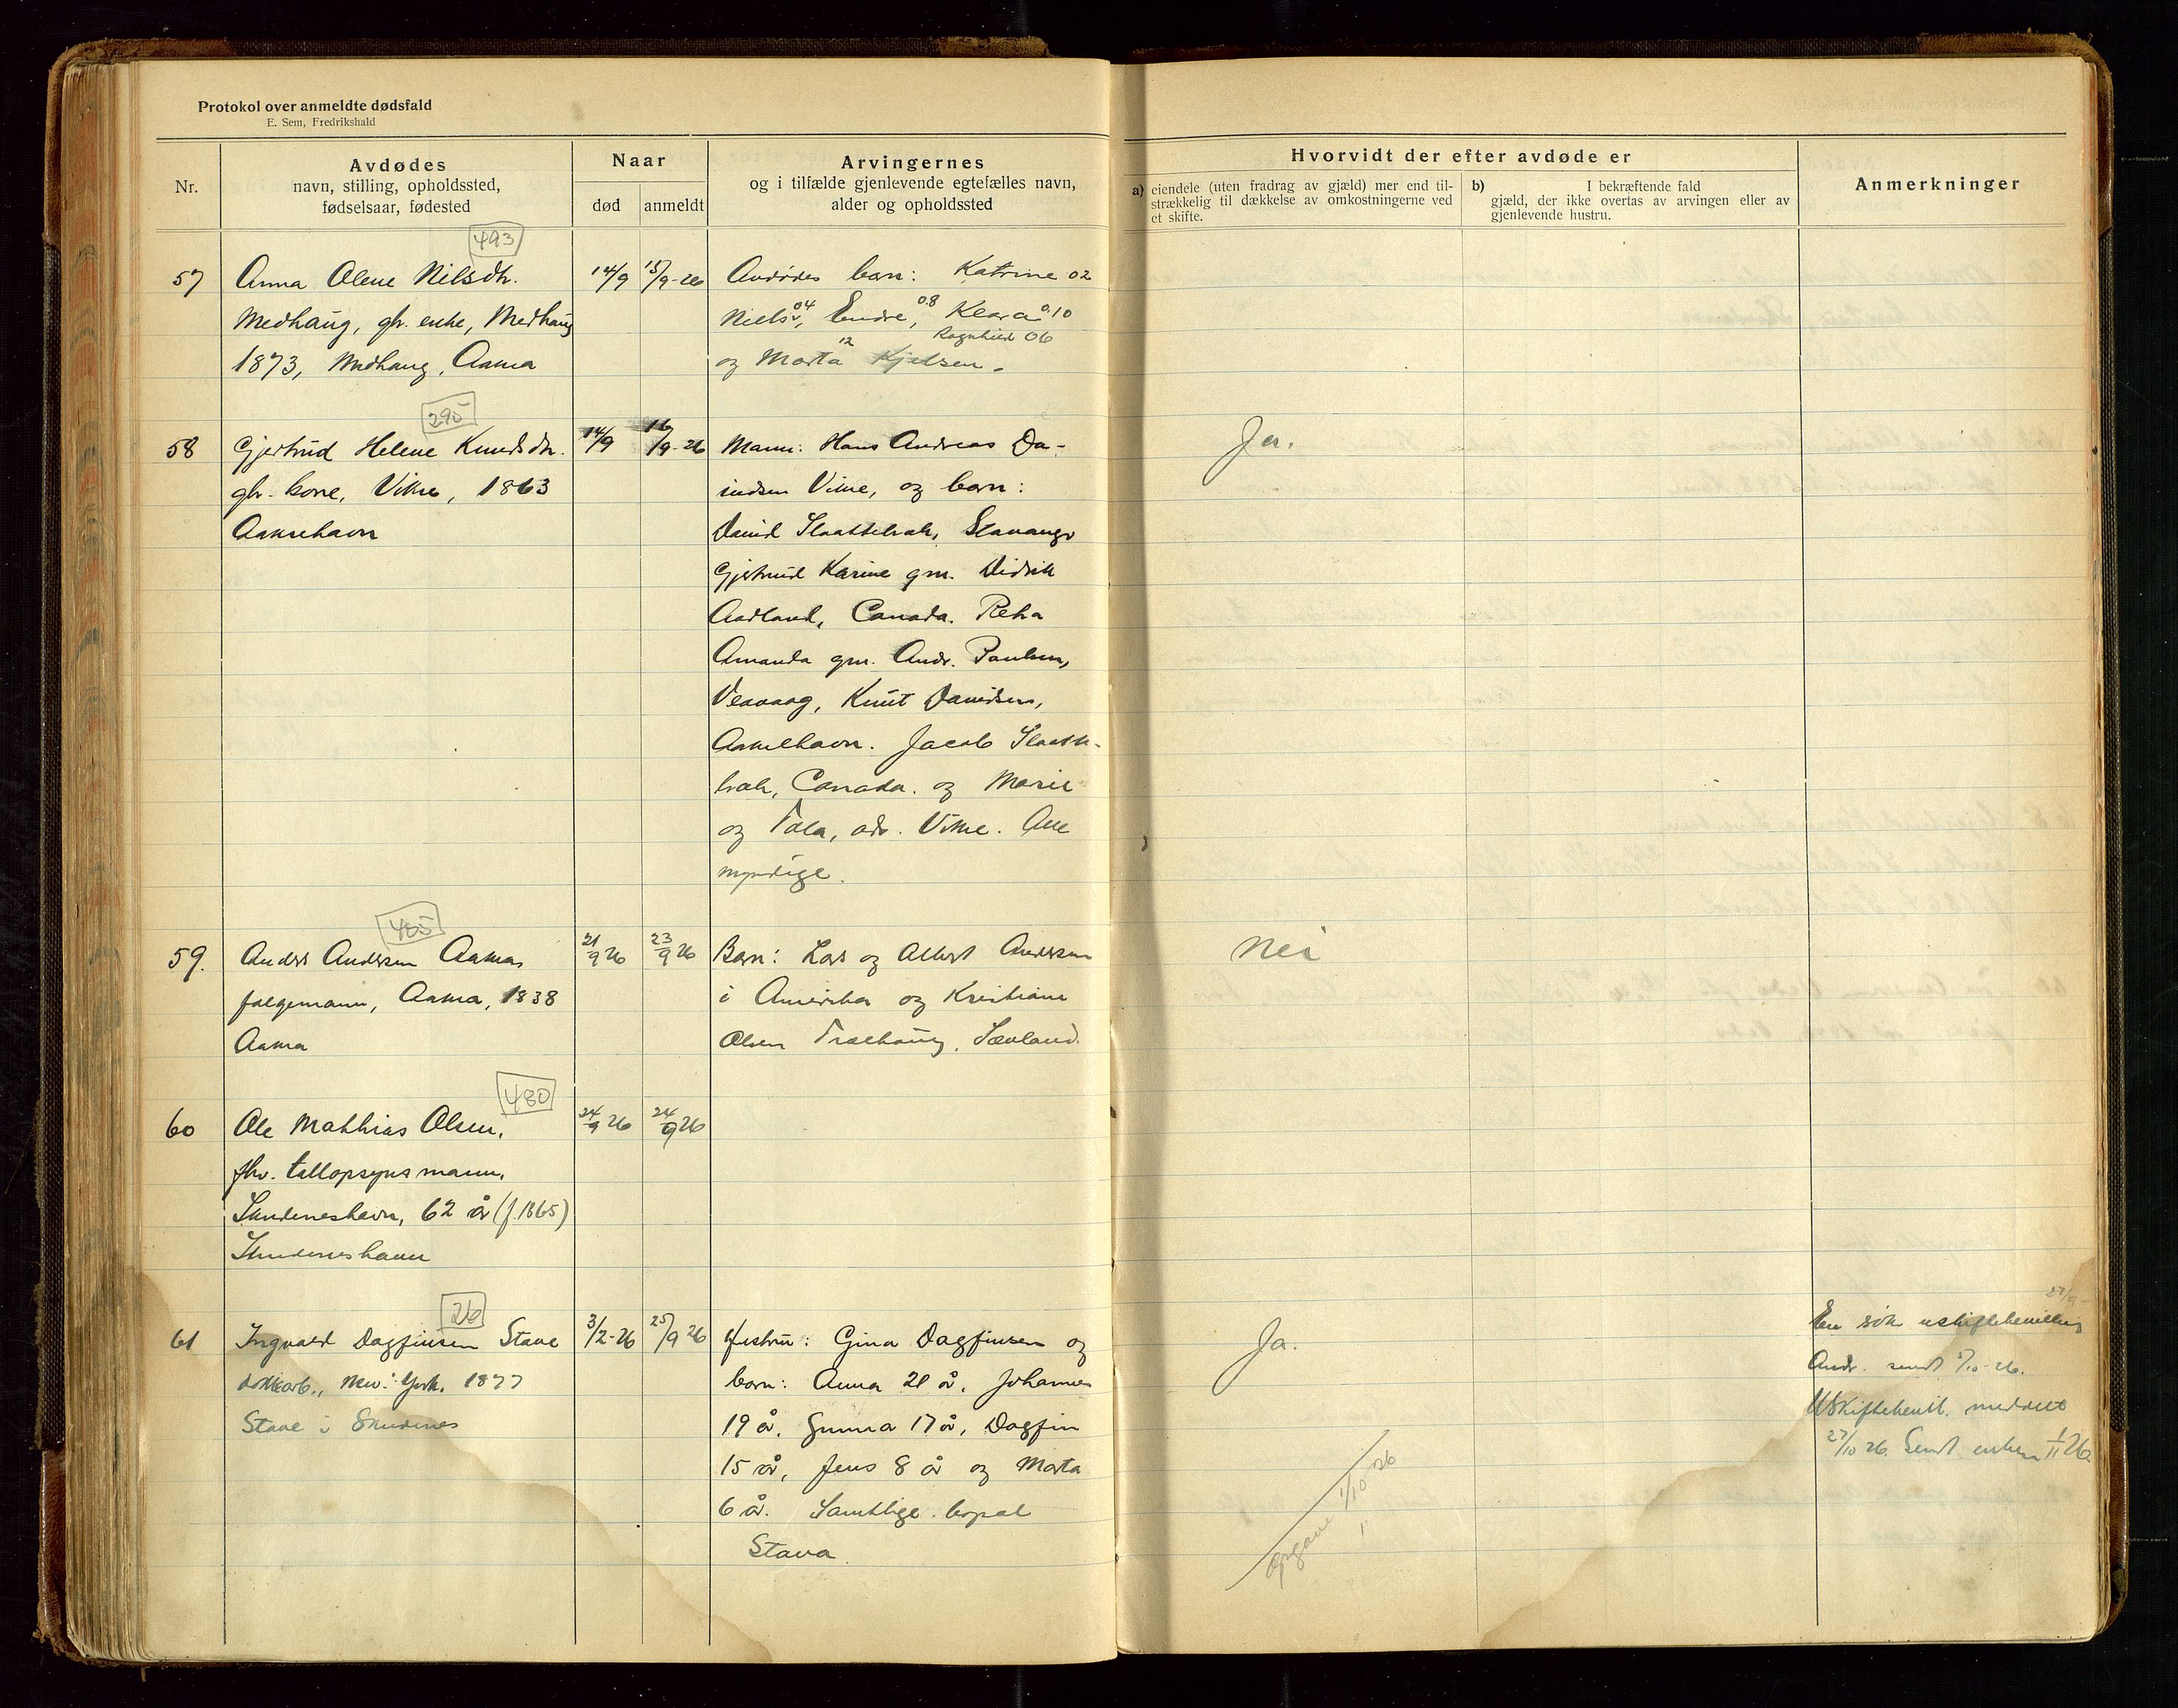 Protokol over anmeldte dødsfald
E. Sem, Fredrikshald
Nr.
Avdødes
navn, stilling, opholdssted,
fødselsaar, fødested
Naar
død
anmeldt
Arvingernes
og i tilfælde gjenlevende egtefælles navn,
alder og opholdssted
Hvorvidt der efter avdøde er
a) eiendele (uten fradrag av gjæld) mer end til-
strækkelig til dækkelse av omkostningerne ved
et skifte.
b) I bekræftende fald
gjæld, der ikke overtas av arvingen eller av
gjenlevende hustru.
Anmerkninger
493
57 Anna Olene Nilsdtr.
Medhaug, gbr. enke, Medhaug
1873, Medhaug, Aakra
14/9 15/9-26
Avdødes barn: Katrine 02
Niels 04, Endre 08, Klara 10
Ragnhild 06
og Marta 12 Kjelsen.
295
58 Gjertrud Helene Knudsdtr.
gbr. kone, Vikre, 1863
Aakrehavn
14/9 16/9-26
Mann: Hans Andreas Da-
vidsen Vikre, og barn:
David Slaattebrak, Stavanger
Gjertrud Karine gm. Didrik
Aadland, Canada. Reha
Amanda gm. Andr. Paulsen,
Veavaag, Knut Davidsen,
Aakrehavn. Jacob Slaatte-
brak, Canada. og Marie
og Tala, adr. Vikre. Alle
myndige.
Ja.
485
59. Anders Andersen Aakra,
følgemann, Aakra, 1838
Aakra
21/9 26 23/9 26
Barn: Lars og Albert Andersen
i Amerika og Kristiane
Olsen Træhaug, Sævland.
Nei
480
60 Ole Mathias Olsen,
fhv. tollopsynsmann,
Skudeneshavn, 62 år (f. 1865)
Skudeneshavn
24/9 26 24/9 26
26
61 Ingvald Dagfinsen Stave
dokkarb., New-York. 1877
Stave i Skudenes
3/2-26 25/9 26
Hustru: Gina Dagfinsen og
barn: Anna 21 år, Johannes
19 år, Gunna 17 år, Dagfin
15 år, Jens 8 år og Marta
6 år. Samtlige bopæl
Stava.
Ja.
Opgave 1/10 26
En. søk. uskiftebevilling
Andr. sendt 5/10-26.
Uskiftebevill. meddelt
27/10 26. Sendt enken 1/11 26